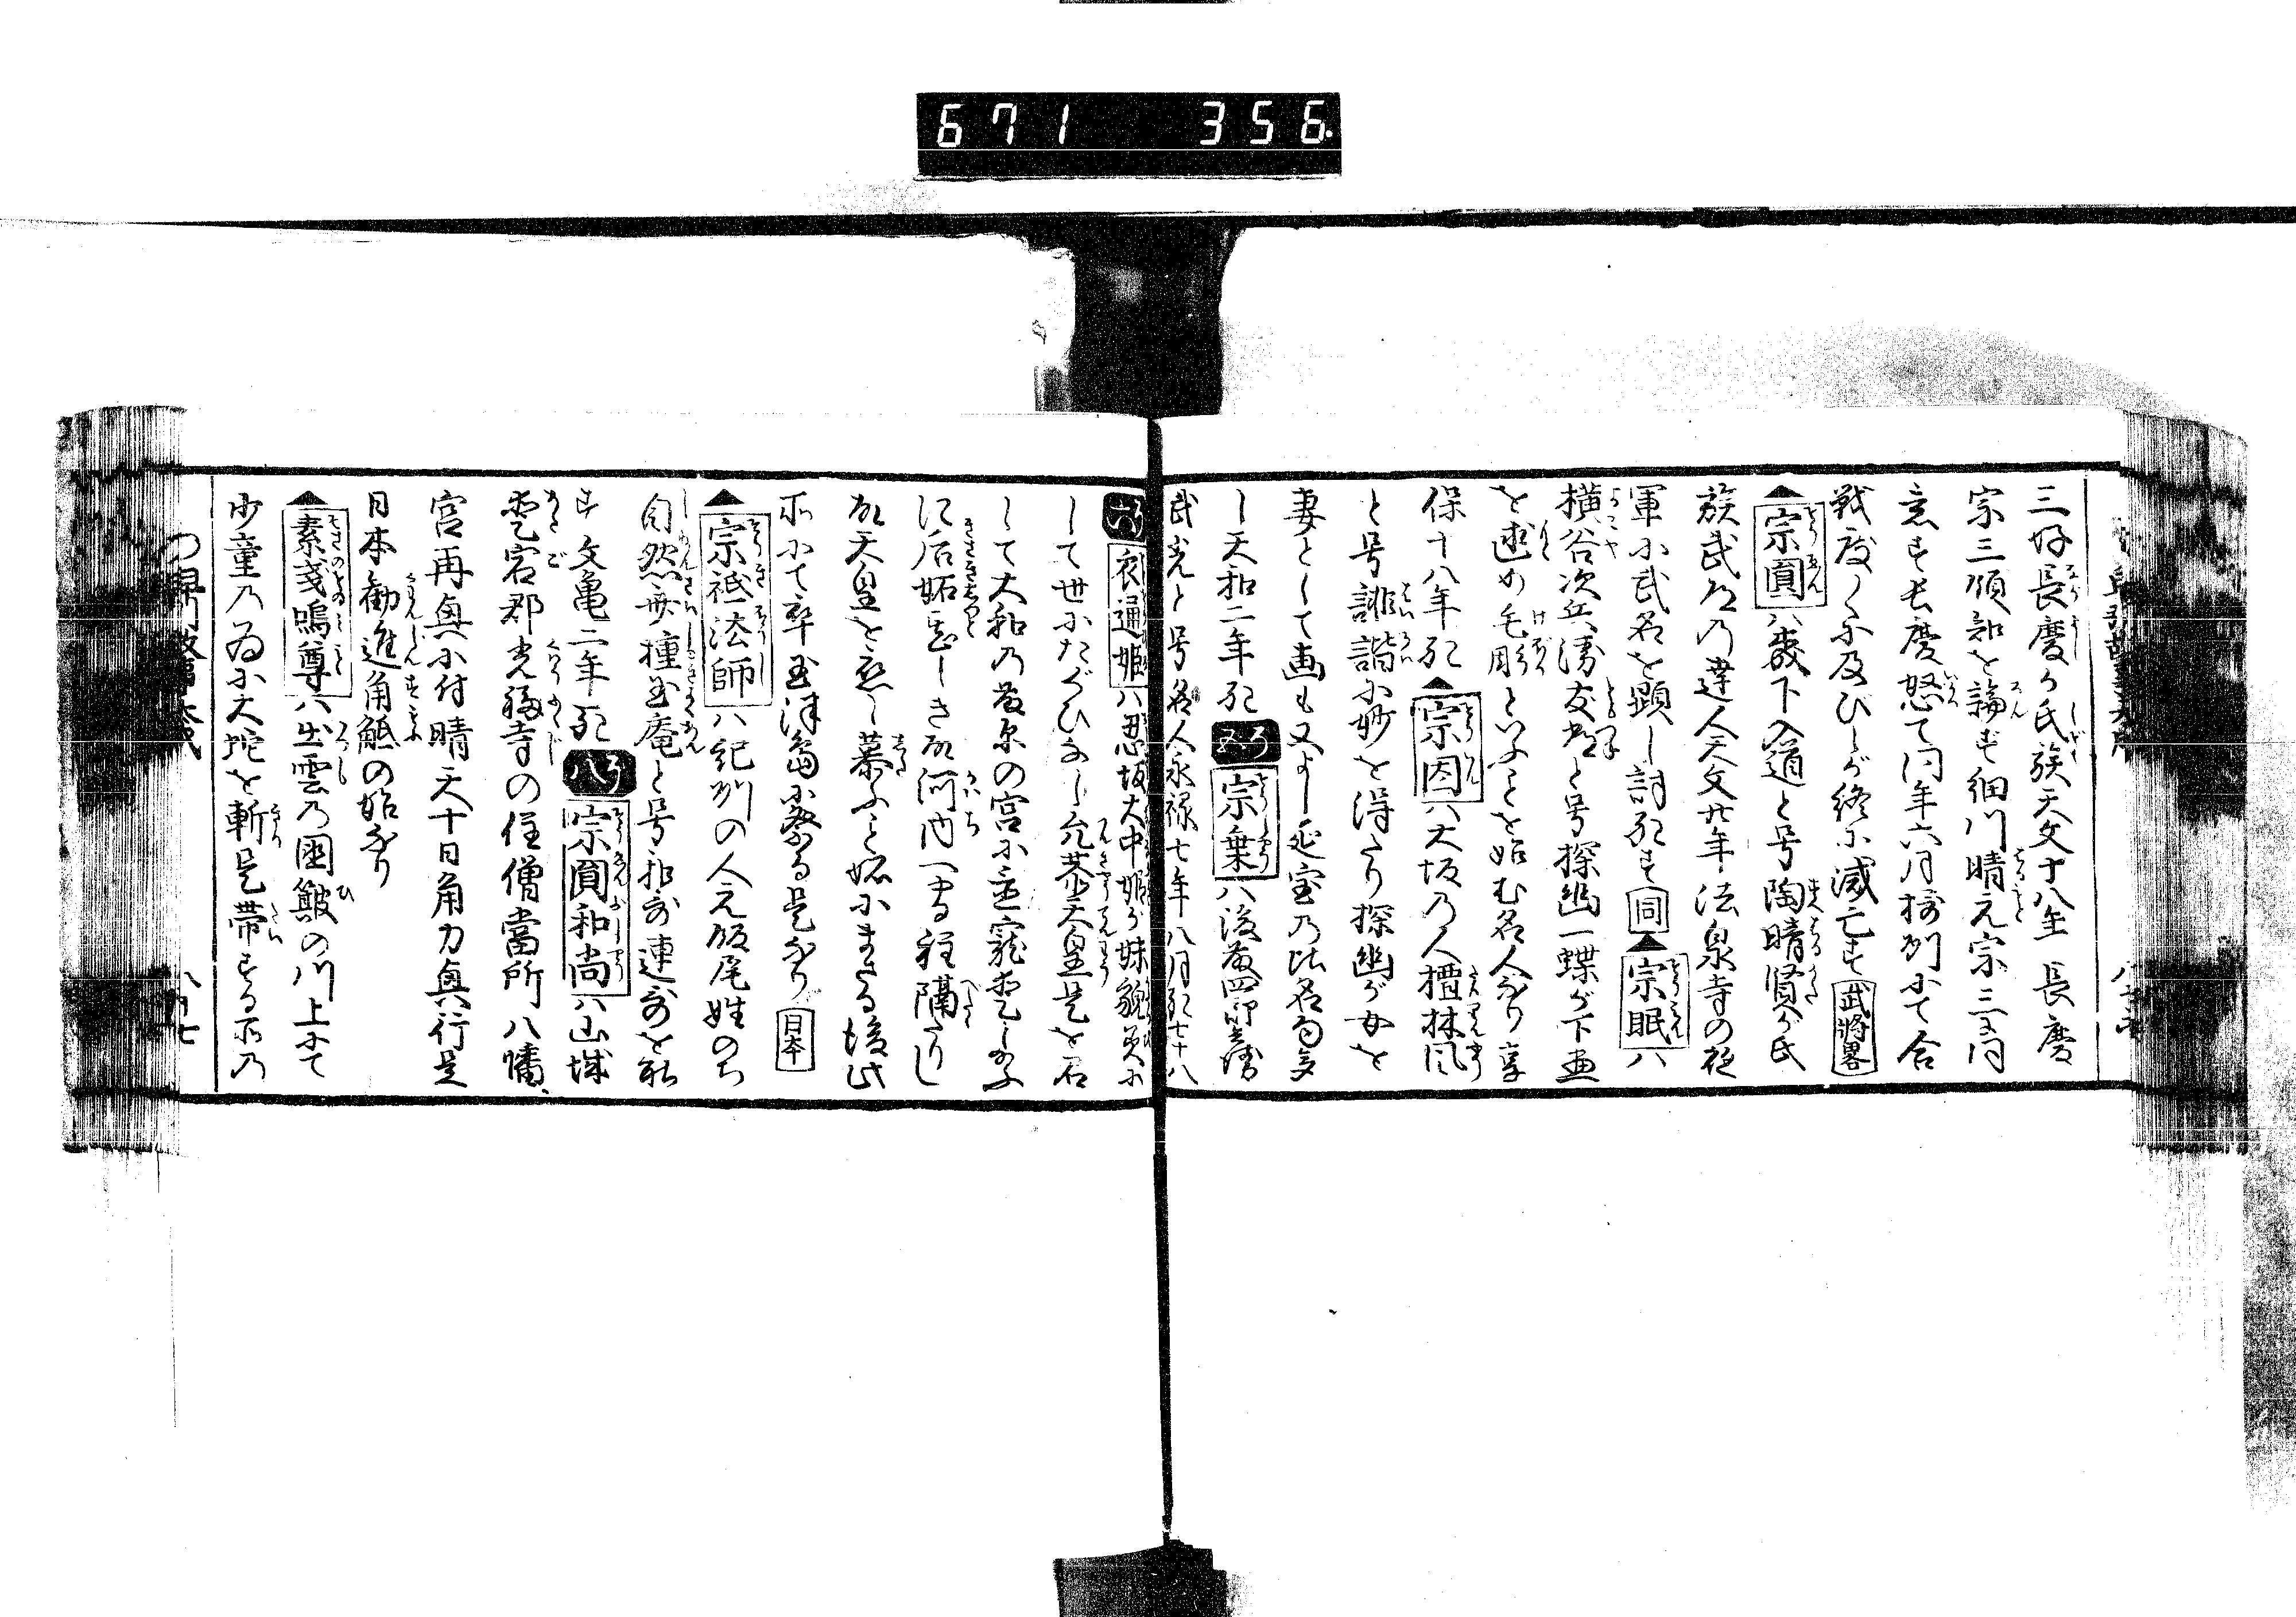 671 356
三好長慶が氏族天文十八年長慶
宗三領知を論ず細川晴元宗三に同
意す長慶怒て同年六月摂州にて合
戦度々に及びしが終に滅亡す 武將畧
▲宗圓ハ歳下入道と号陶晴賢が氏
族武道の達人天文廿年法泉寺の夜
軍に武名を顕し討死す 同 ▲宗眠ハ
横谷次兵衛友常と号探幽一蝶が下画
を求め毛彫といふことを始む名人なり享
保十八年死 ▲宗因ハ大坂の人檀林風
と号誹諧に妙を得たり探幽が女を
妻として画も又よし延宝の比名句多
し天和二年死 宗乗ハ後藤四郎兵衛
武光と号名人永禄七年八月死七十八
衣通姫ハ忍坂大中姫が妹貌美に
して世にたぐひなし允恭天皇是を召
して大和の藤原の宮に並寵愛し給ふ
に后妬甚しき故河内一有程隔たりし
故天皇を恋し慕ふと妬にまさる後此
所にて卒玉津島に祭る是なり 日本
▲宗祇法師ハ紀州の人元飯尾姓のち
自然斎種玉庵と号和歌連歌を能
す文亀二年死 八 宗圓和尚ハ山城
愛宕郡光福寺の住僧當所八幡
宮再興に付晴天十日角力興行是
日本勧進角觝の始なり
▲素戔嗚尊ハ出雲の國簸の川上にて
少童の為に大蛇を斬是帯する所の